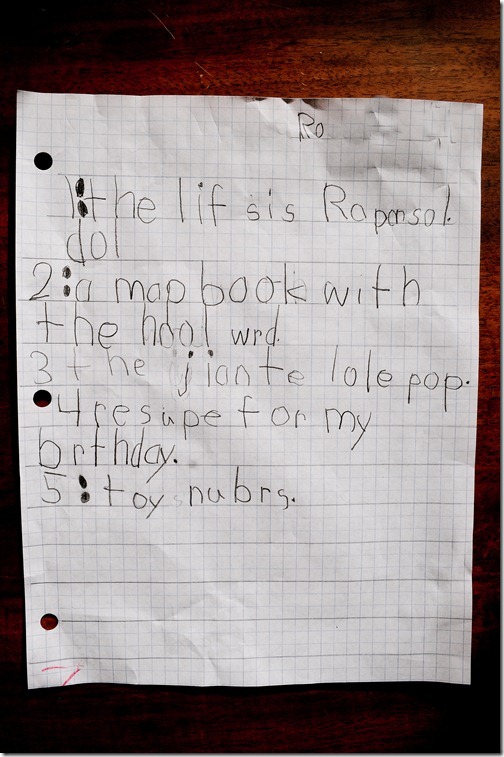 Ro
1:the lif sis Raponsol.
dol
2:a map book with
the hool wrd.
3 the jiante lole pop.
4 resupe for my
brthday.
5: toy nubrs.